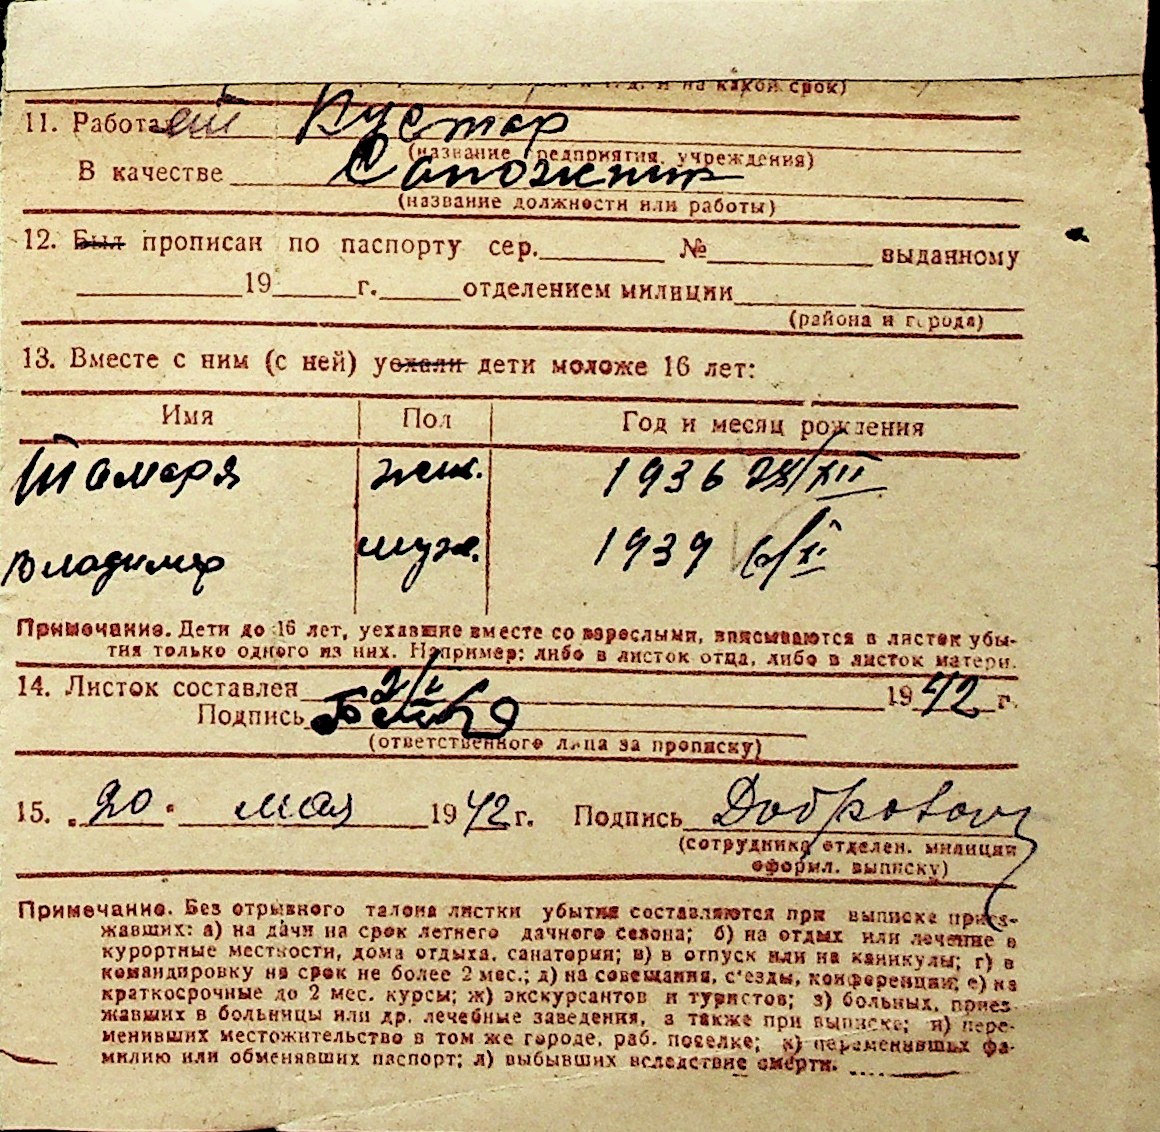 и на какой срок)
11. Работает Кустар
(название предприятия, учреждения)
В качестве Сапожник
(название должности или работы)
12. Был прописан по паспорту сер. № выданному
19 г. отделением милиции
(района и города)
13. Вместе с ним (с ней) уехали дети моложе 16 лет:
Имя Пол Год и месяц рождения
Тамара жен. 1936 28/XII
Владимир муж. 1939
Примечание. Дети до 16 лет, уехавшие вместе со взрослыми, вписываются в листок убы-
тия только одного из них. Например: либо в листок отца, либо в листок матери.
14. Листок составлен 1942 г.
Подпись
(ответственного лица за прописку)
15. „20" мая 1942 г. Подпись
(сотрудника отделен. милиции
оформл. выписку)
Примечание. Без отрывного талона листки убытия составляются при выписке приез-
жавших: а) на дачи на срок летнего дачного сезона; б) на отдых или лечение в
курортные местности, дома отдыха, санатории; в) в отпуск или на каникулы; г) в
командировку на срок не более 2 мес.; д) на совещания, с'езды, конференции; е) на
краткосрочные до 2 мес. курсы; ж) экскурсантов и туристов; з) больных, приез-
жавших в больницы или др. лечебные заведения, а также при выписке; и) пере-
менивших местожительство в том же городе, раб. поселке; к) переменивших фа-
милию или обменявших паспорт; л) выбывших вследствие смерти.